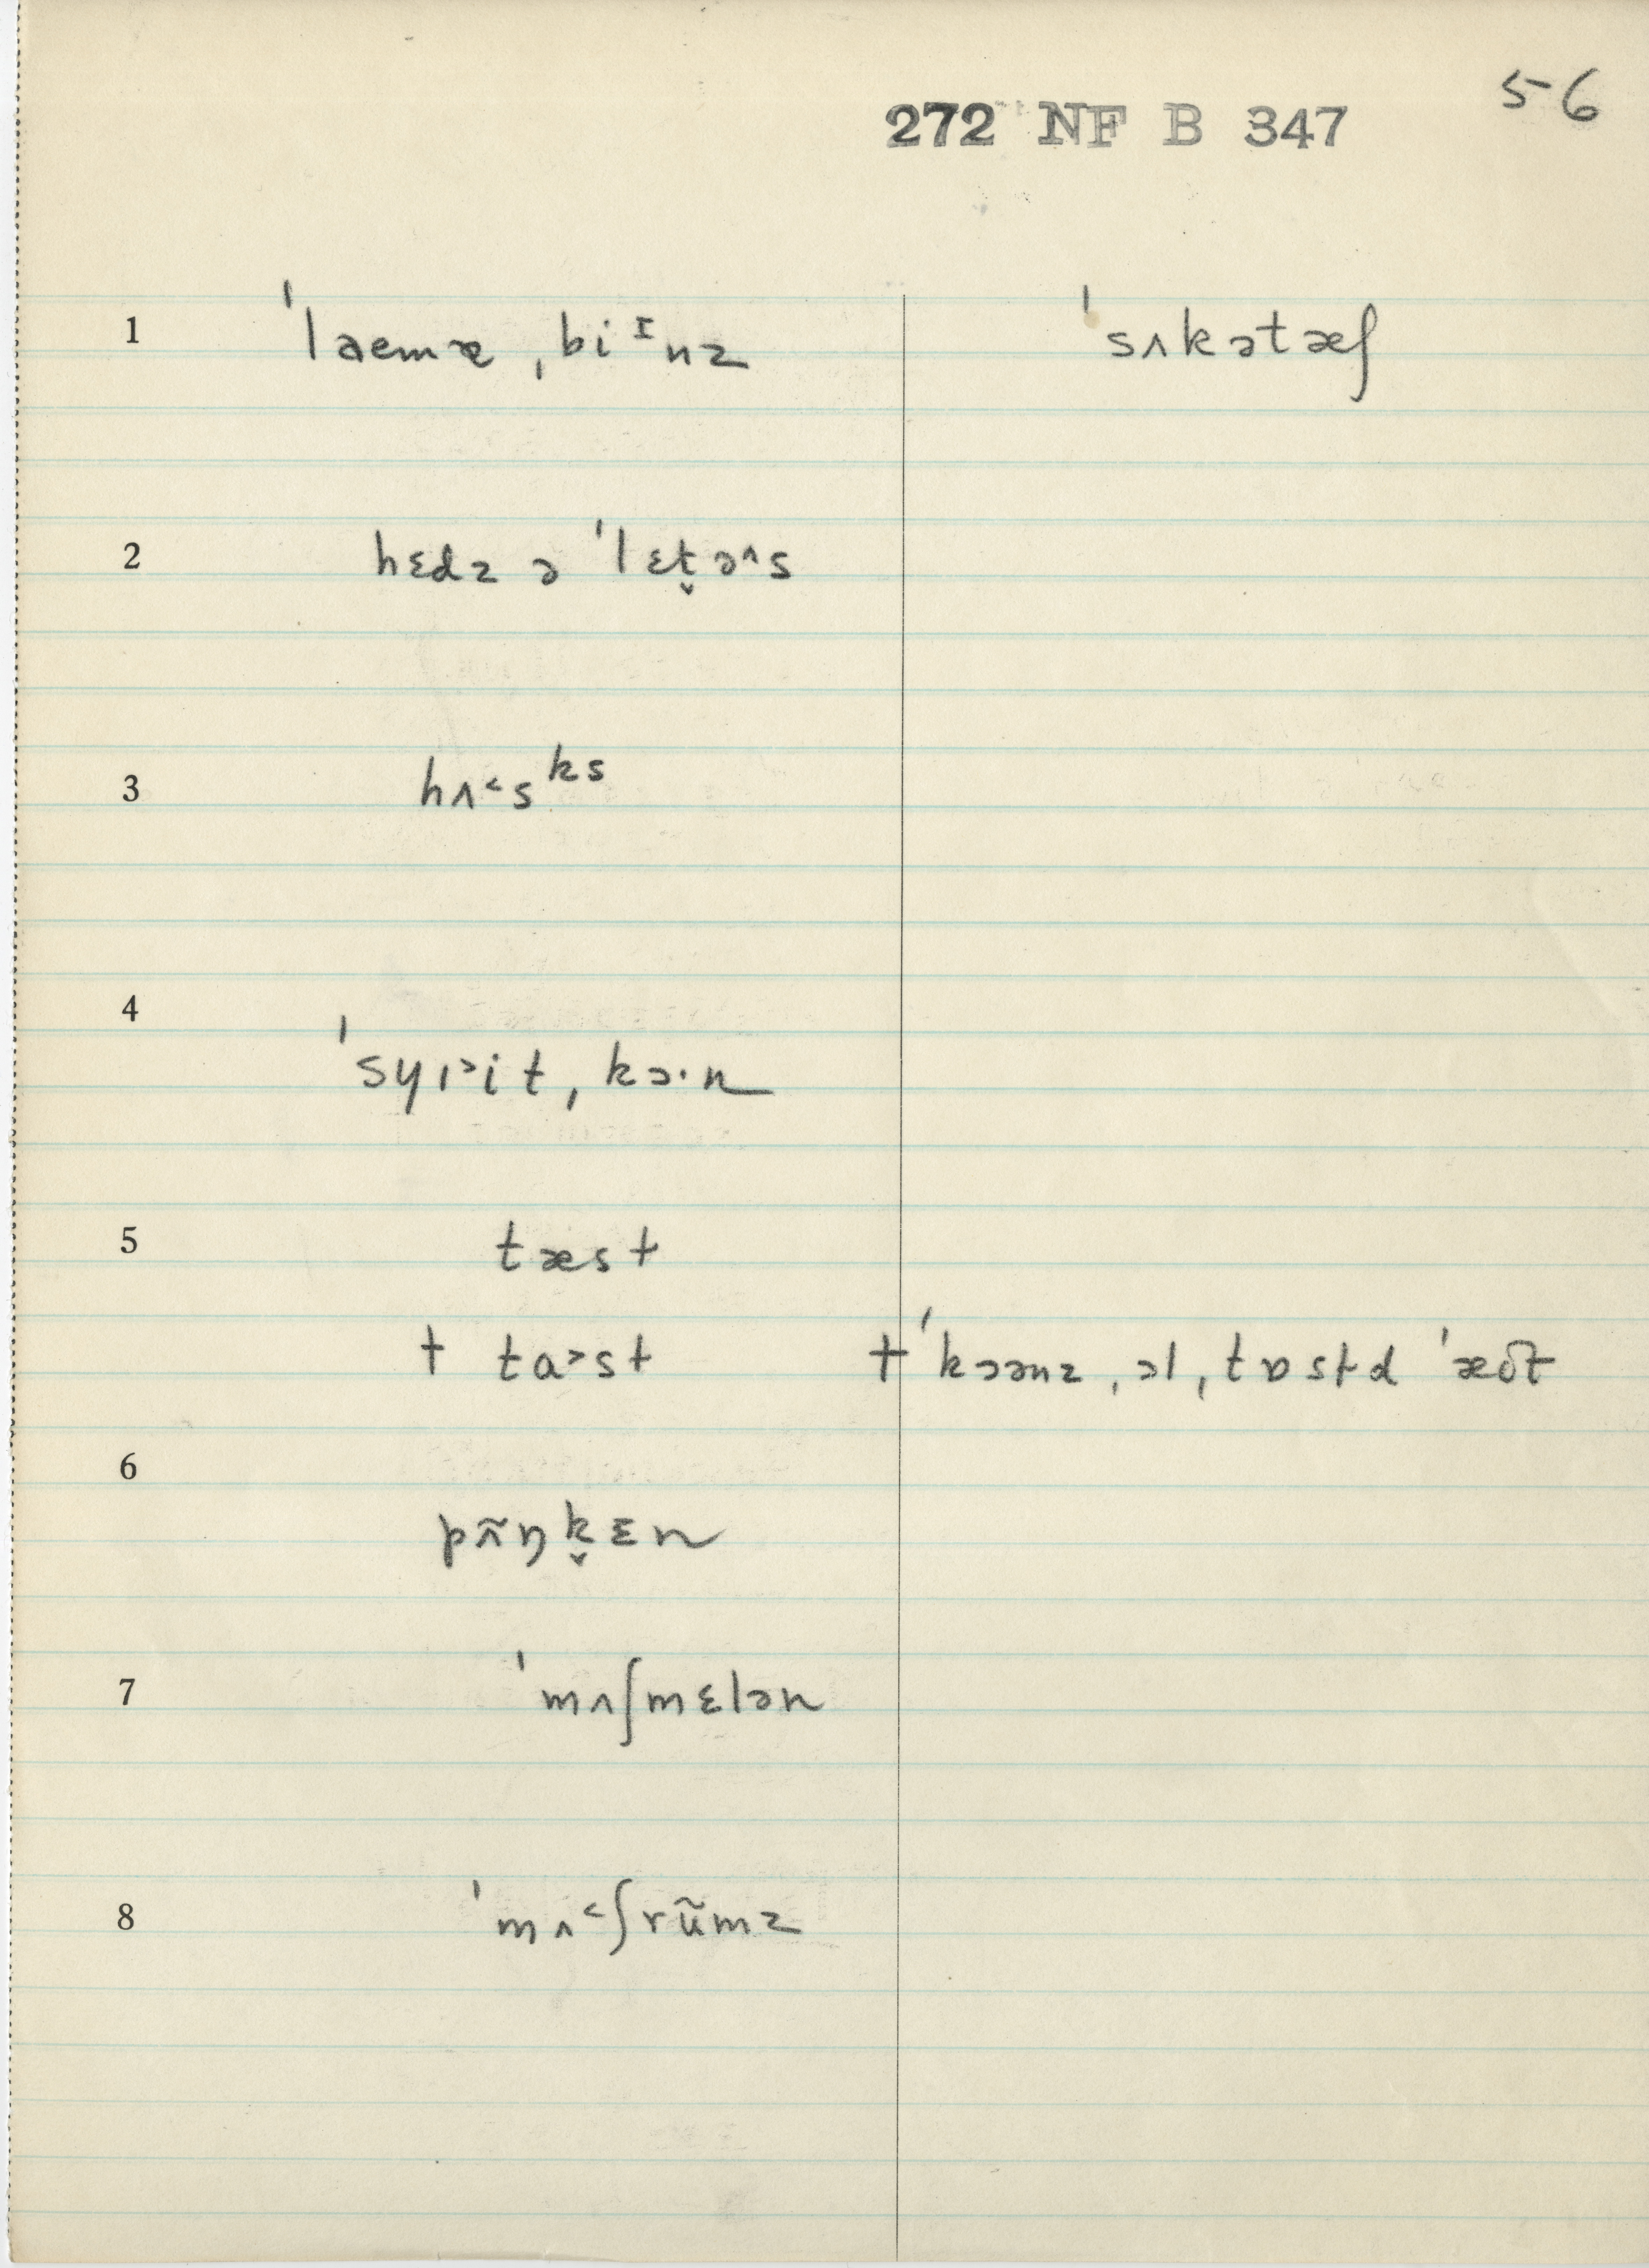 56
272 NF B 347
1 ˈlæmæ ˌbiᴵnz ˈsʌkətæʃ
2 hɛdz ə ˈlɛt̬ə˄s
3 hʌ˂sᵏˢ
4 ˈsyɪ˃it ˌkɔ·n
5 tæst
† ta˃st † ˈkɔənz ˌɔl ˌtɒstd ˈæʊt
6 pʌ̃ŋk̬ɛn
7 ˈmʌʃmɛlən
8 ˈmʌ˂ʃrũmz